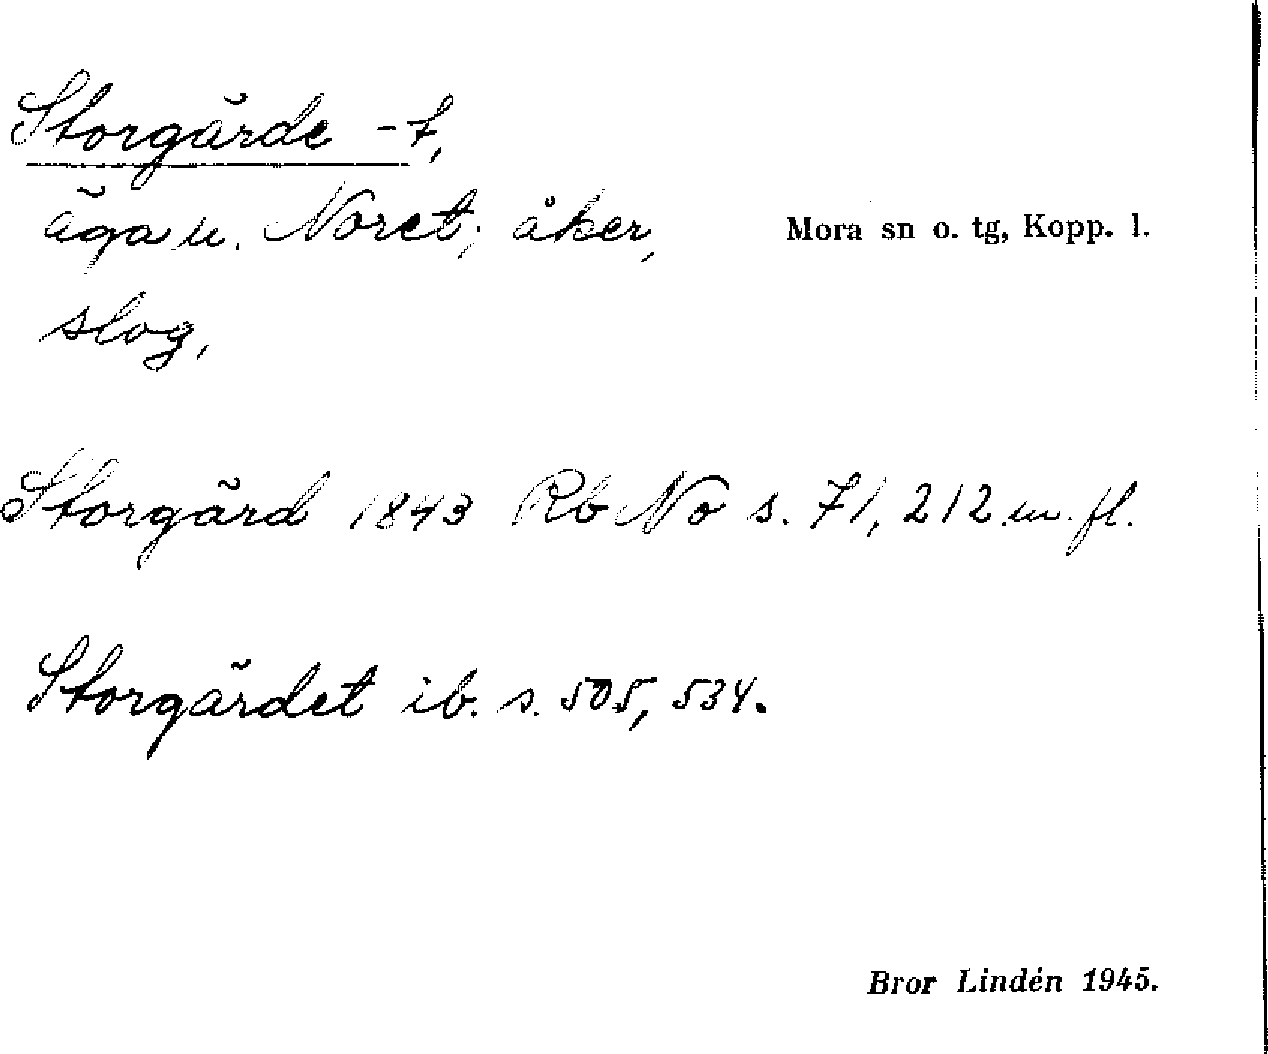 Storgärde -t,
äga u. Noret; åker,
Mora sn o. tg, Kopp. l.
slog,
Storgärd 1843 Rb No s. 71, 212 m. fl.
Storgärdet ib. s. 505, 534.
Bror Lindén 1945.